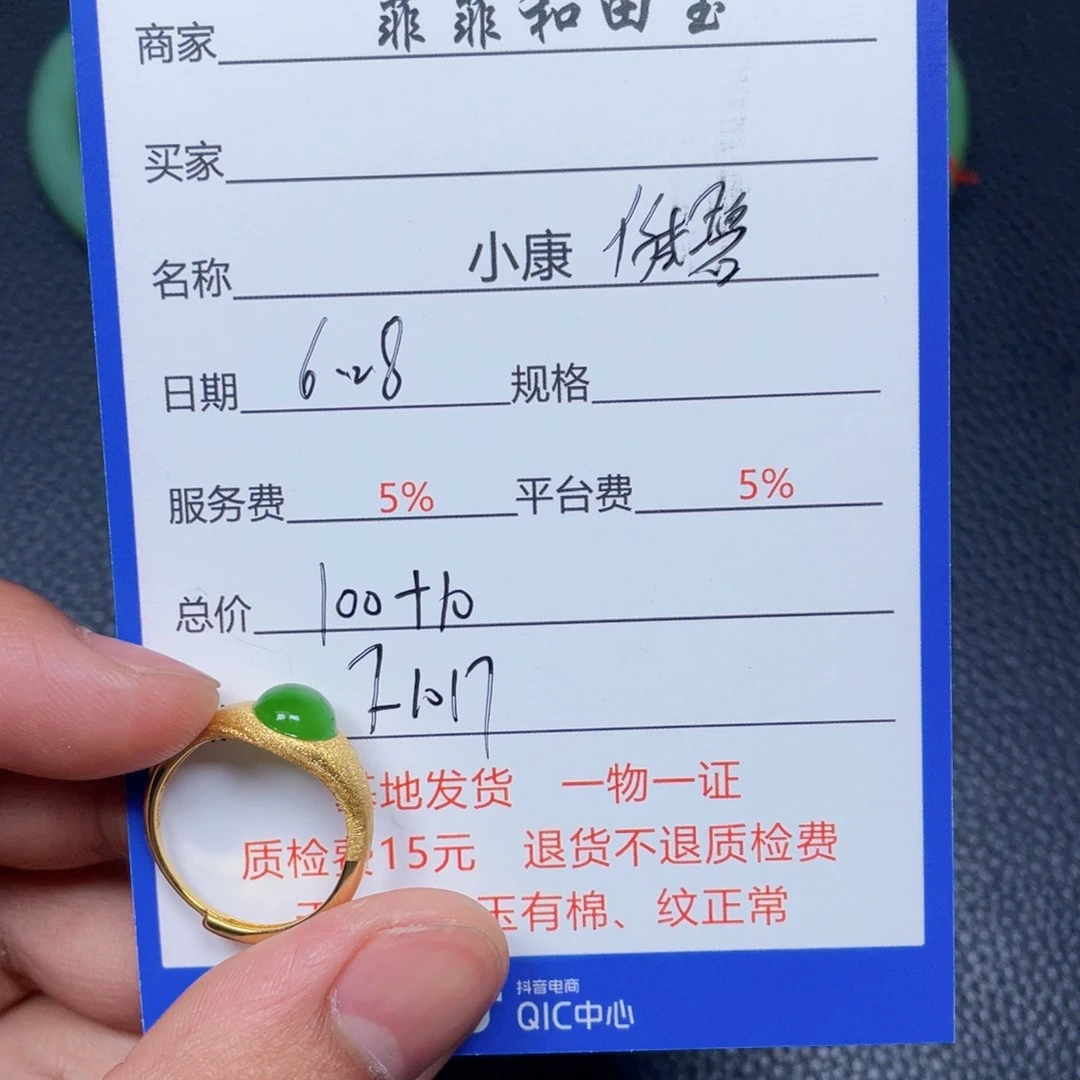 商家 菲菲和田玉
买家
名称 小康
日期 6.28 规格
服务费 5% 平台费 5%
总价 100+10
地发货 一物一证
质检费15元 退货不退质检费
玉有棉、纹正常
抖音电商
QIC中心